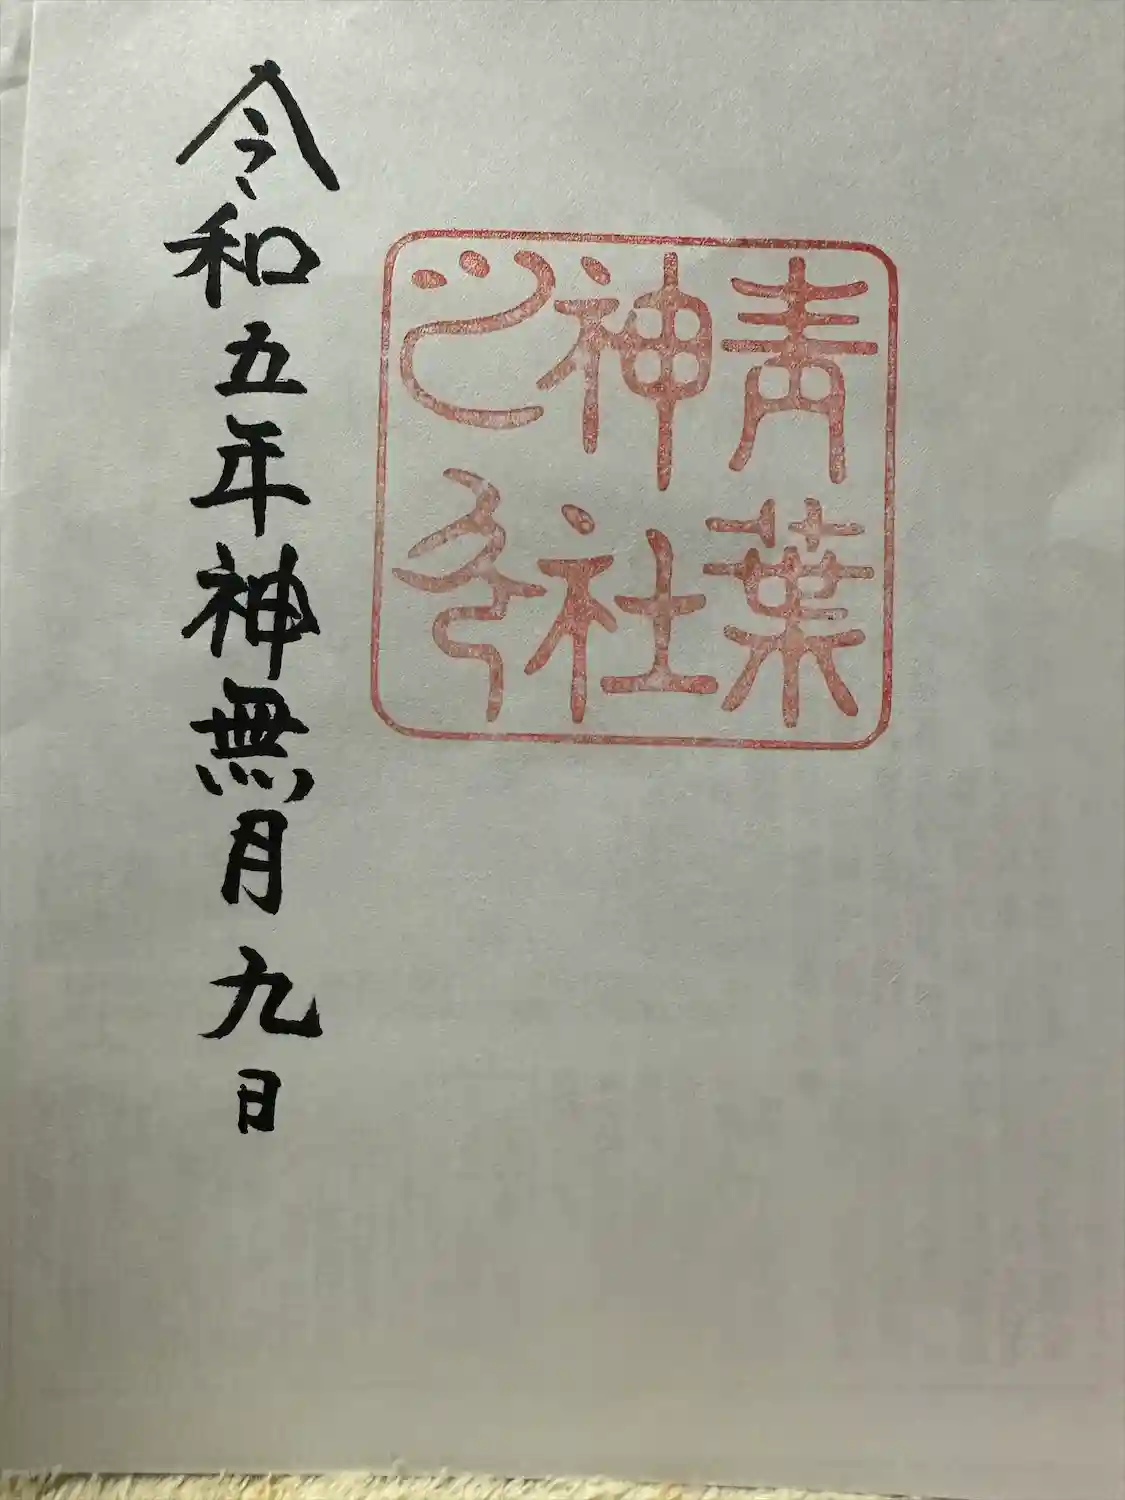 青葉
神社
之印
令和五年神無月九日